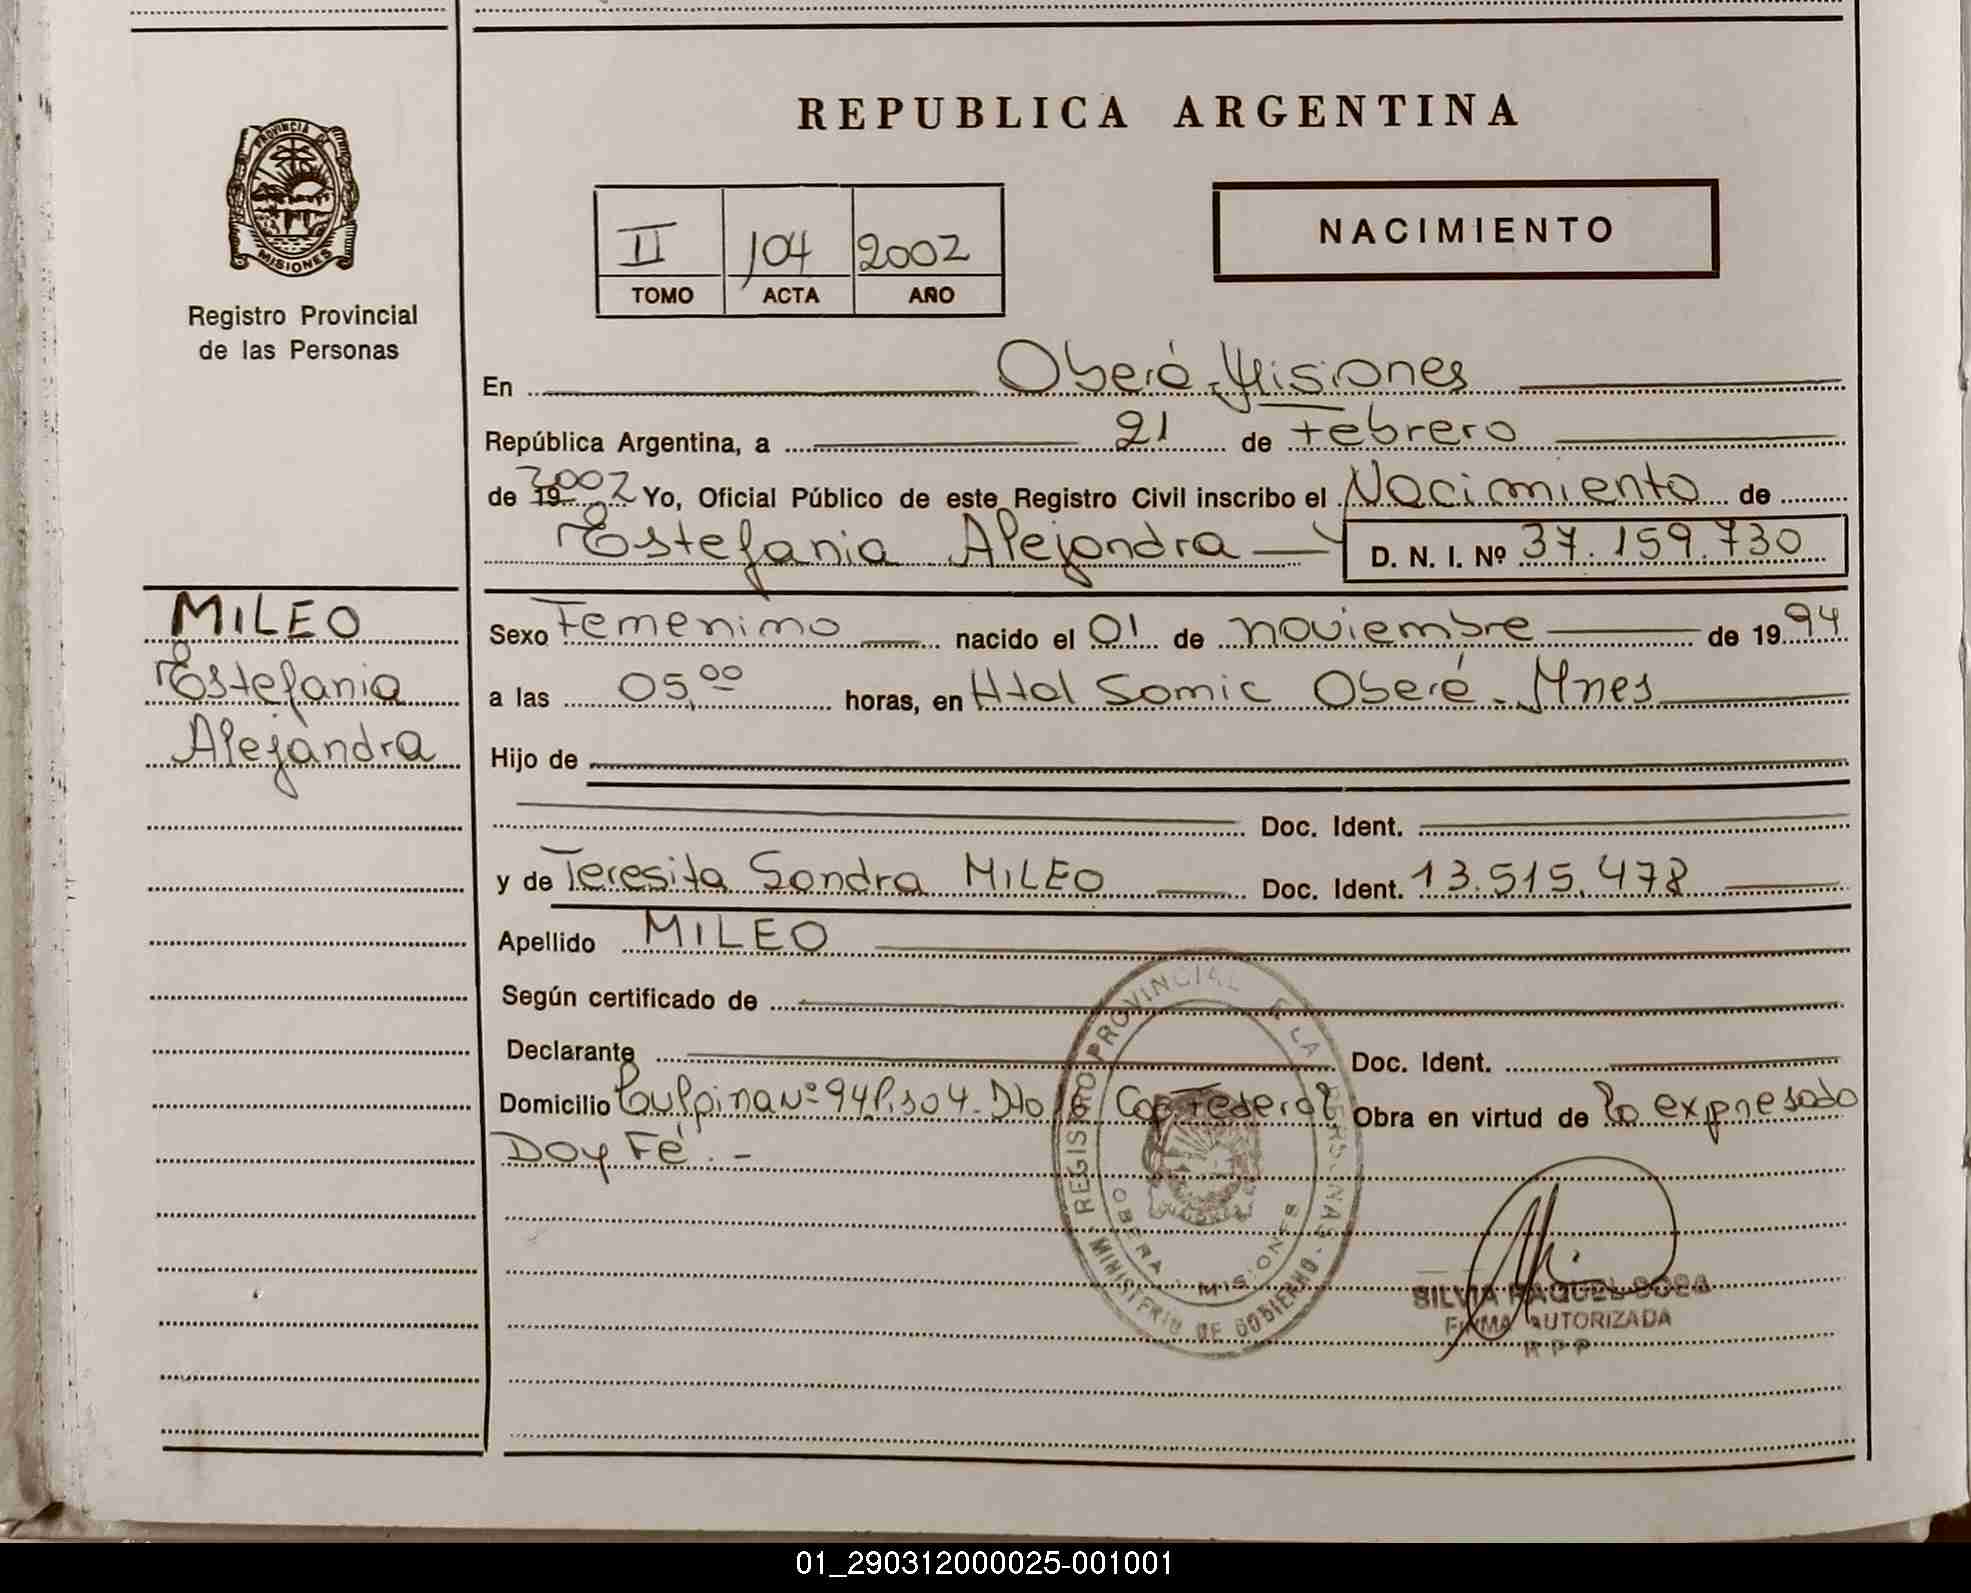 REPUBLICA ARGENTINA
PROVINCIA DE
MISIONES
Registro Provincial
de las Personas
II 104 2002
TOMO ACTA AÑO
NACIMIENTO
En Oberá - Misiones
República Argentina, a 21 de Febrero
de 19 2002 Yo, Oficial Público de este Registro Civil inscribo el Nacimiento de
Estefania Alejandra D. N. I. Nº 37.159.730
MILEO
Estefania
Alejandra
Sexo Femenino nacido el 01 de noviembre de 1994
a las 05,00 horas, en Htal Samic Oberá - Mnes
Hijo de
Doc. Ident.
y de Teresita Sandra MILEO Doc. Ident. 13.515.478
Apellido MILEO
Según certificado de
Declarante Doc. Ident.
Domicilio Culpina Nº 94 Piso 4 Dto Cap Federal Obra en virtud de lo expresado
Doy Fé. -
REGISTRO PROVINCIAL DE LAS PERSONAS -
MINISTERIO DE GOBIERNO -
OBERA - MISIONES
SILVIA RAQUEL SOSA
FIRMA AUTORIZADA
R P P
01_290312000025-001001